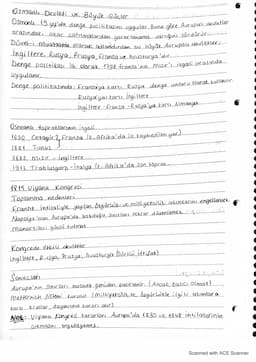 Osmanlı Devleti ve Büyük Güçler
Osmanlı 19. yy'da denge politikasını uygular. Buna göre Avrupalı devletler
arasındaki çıkar çatışmalarından yararlanarak varlığını sürdürür.
Düvel-i Muazzama olarak adlandırılan bu büyük Avrupalı devletler:
İngiltere, Rusya, Fransa, Prusya ve Avusturya'dır.
Denge politikası ilk olarak 1798 Fransa'nın Mısır'ı işgali sırasında
uygulanır.
Denge politikasında: Fransa'ya karşı Rusya denge unsuru olarak
Rusya'ya karşı İngiltere
İngiltere-Fransa-Rusya'ya karşı Almanya
Osmanlı topraklarının işgali
1830 Cezayir → Fransa (K. Afrika'da ilk kaybedilen yer)
1881 Tunus
1882 Mısır → İngiltere
1911 Trablusgarp → İtalya (K. Afrika'da son toprak)
1815 Viyana Kongresi
Toplanma nedenleri
Fransız ihtilaliyle yayılan özgürlük ve milliyetçilik akımlarını engellemek
Napolyon'un Avrupa'da bozduğu sınırları tekrar düzenlemek
Monarşileri güçlü tutmak
Kongrede etkili devletler
İngiltere, Rusya, Prusya, Avusturya (Dörtlü İttifak)
Sonuçları
Avrupa'nın sınırları masada yeniden belirlenir. (Ancak kalıcı olmaz)
Metternich sistemi kurulur (milliyetçilik ve özgürlükle ilgili isyanlara
karşı krallar dayanışma kararı alır)
NOT: Viyana Kongresi kararları Avrupa'da 1830 ve 1848 ihtilallerinin
çıkmasını engelleyemez.
Scanned with ACE Scanner